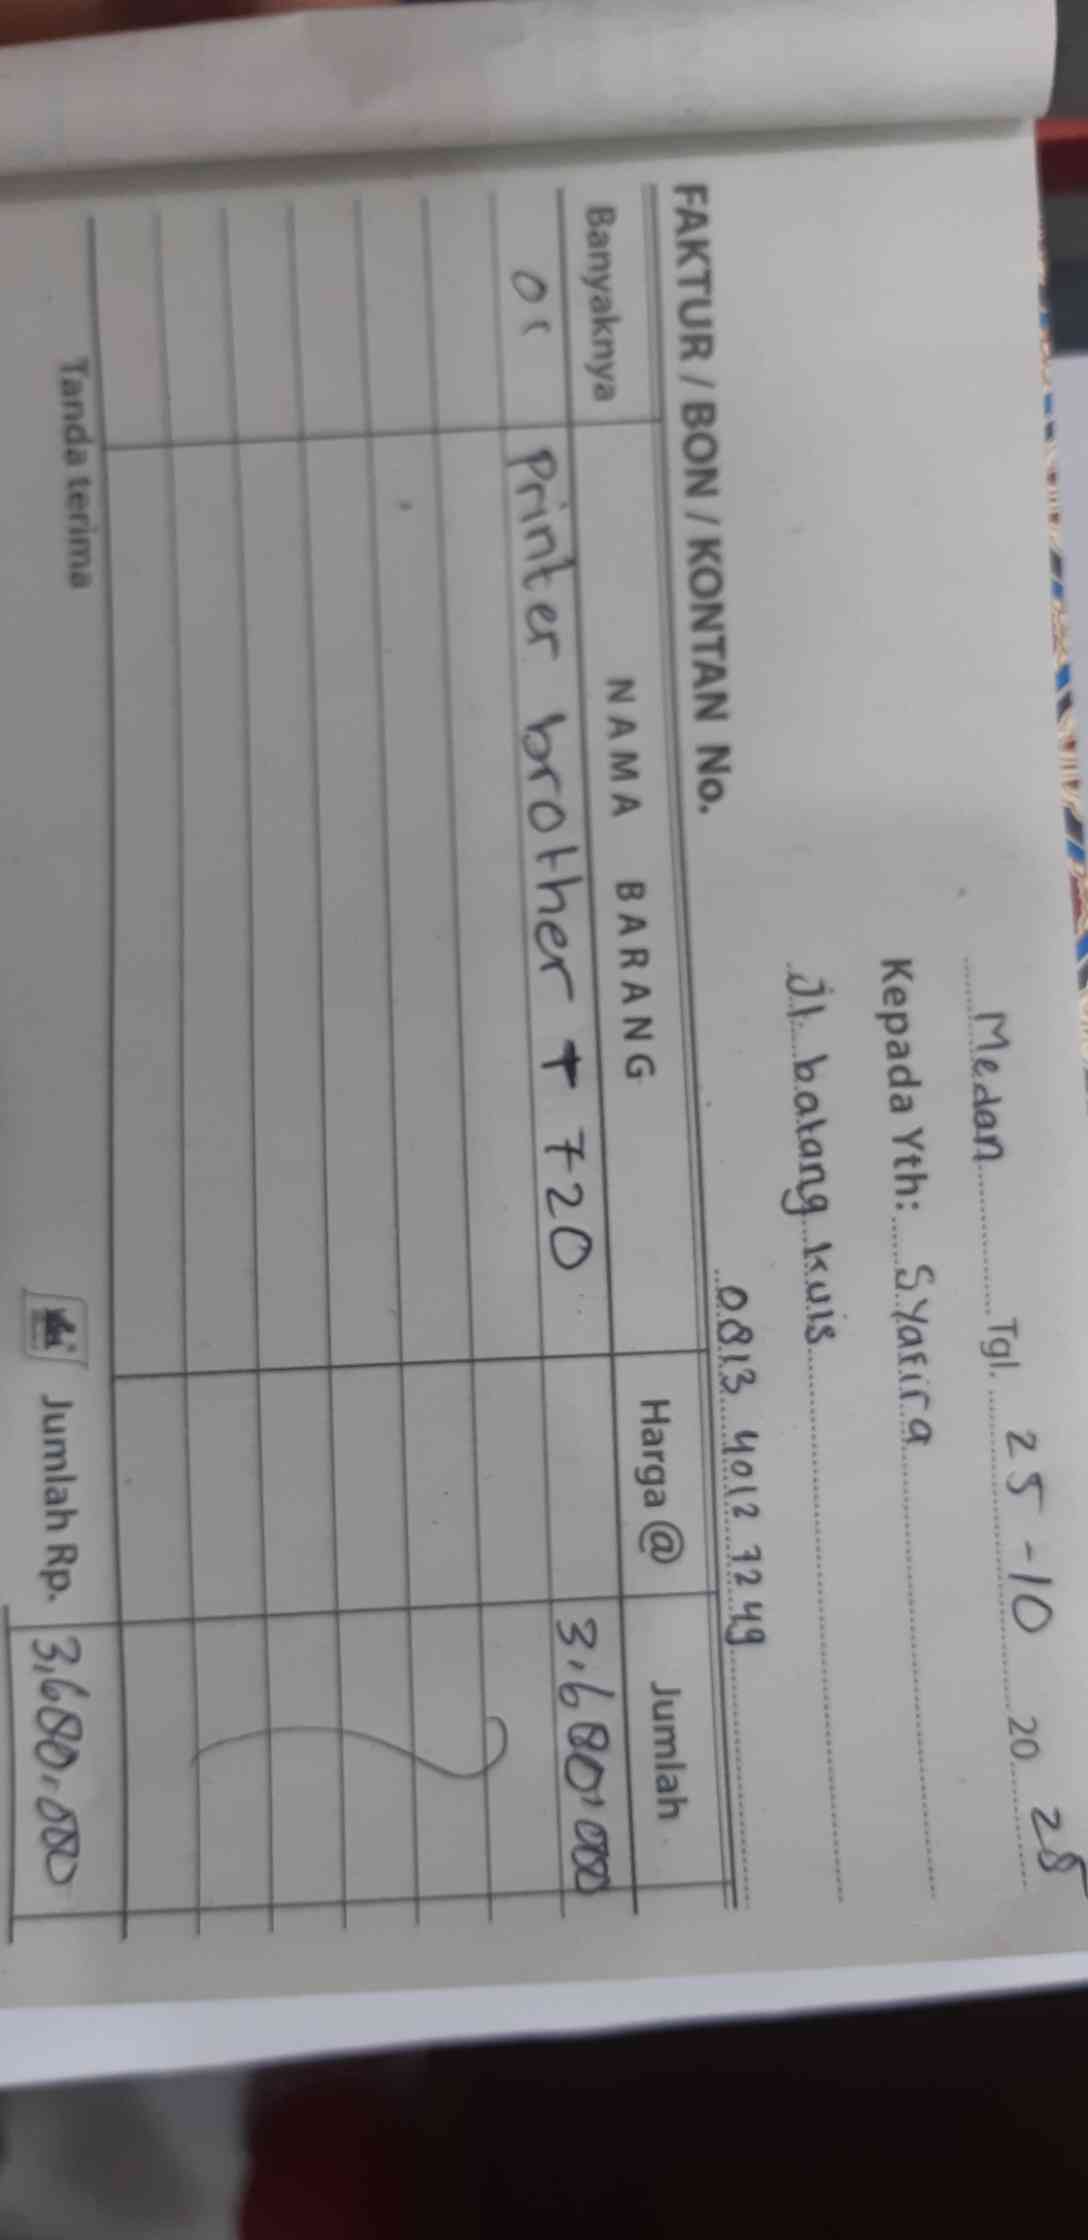 Medan Tgl. 25-10 20 25
Kepada Yth: Syafira
Jl. batang kuis
0813 4012 7249
FAKTUR / BON / KONTAN No.
Banyaknya NAMA BARANG Harga @ Jumlah
01 Printer brother T 720 3.680.000
Tanda terima Jumlah Rp. 3.680.000